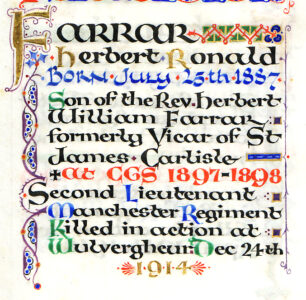 FARRAR
Herbert Ronald
BORN July 25th 1887
Son of the Rev. Herbert
William Farrar
formerly Vicar of St
James Carlisle
+at CGS 1897-1898
Second Lieutenant
Manchester Regiment
Killed in action at
Wulverghem Dec 24th
1914